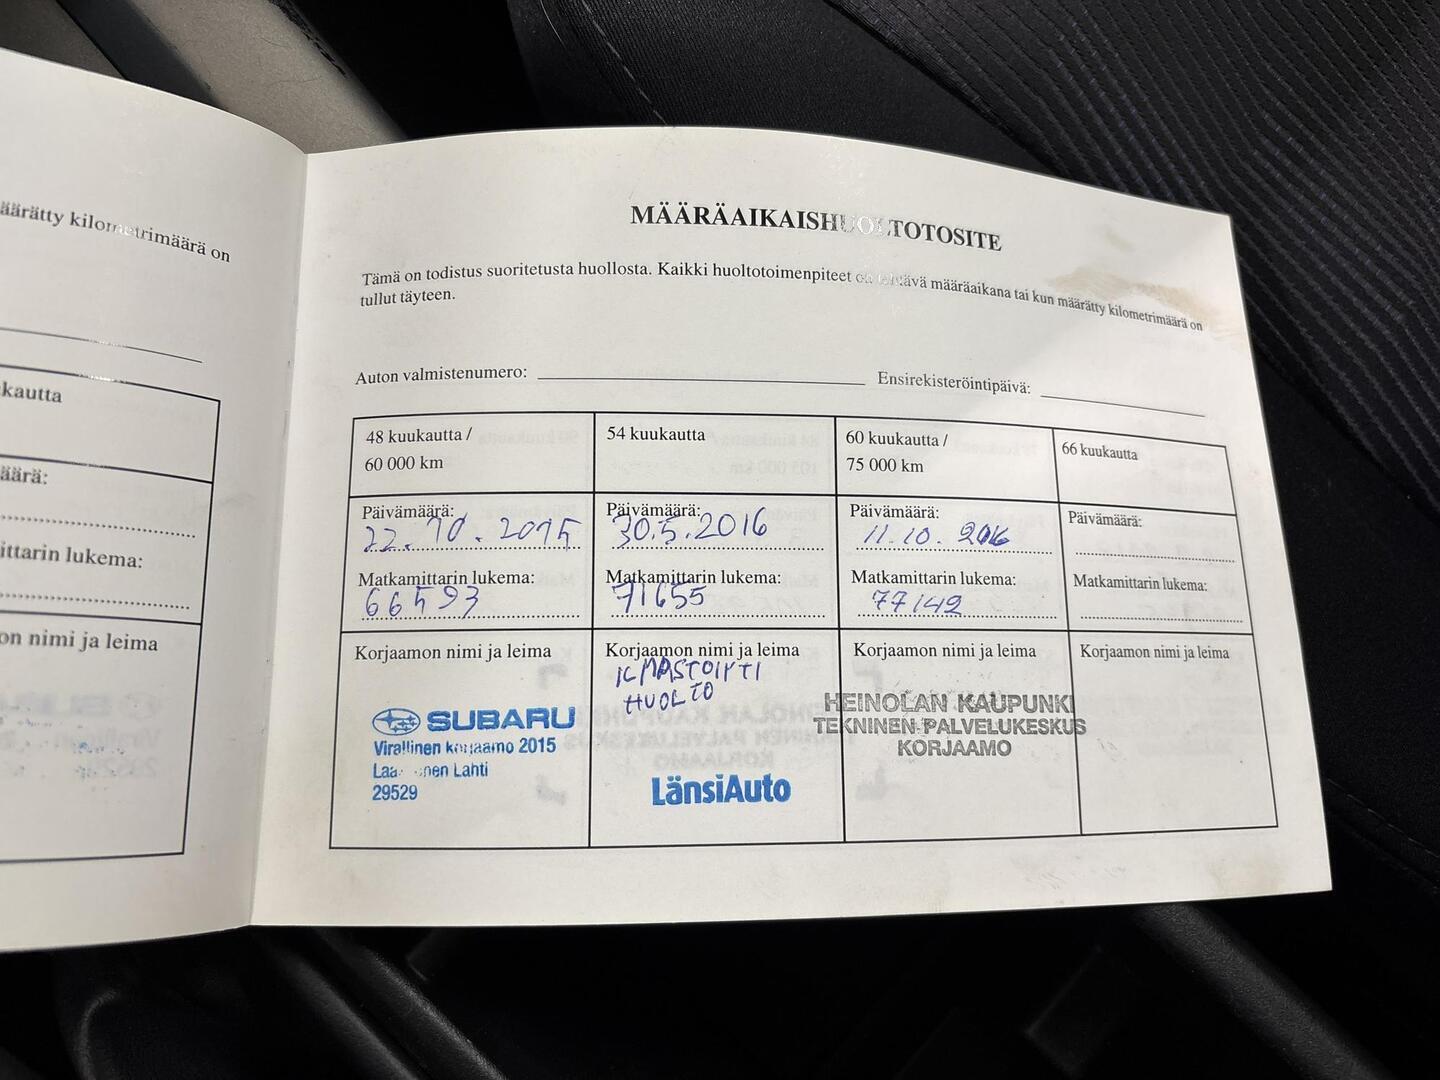 äärätty kilometrimäärä on
kautta
äärä:
ittarin lukema:
on nimi ja leima
MÄÄRÄAIKAISHUOLTOTOSITE
Tämä on todistus suoritetusta huollosta. Kaikki huoltotoimenpiteet on tehtävä määräaikana tai kun määrätty kilometrimäärä on
tullut täyteen.
Auton valmistenumero: Ensirekisteröintipäivä:
48 kuukautta / 54 kuukautta 60 kuukautta / 66 kuukautta
60 000 km 75 000 km
Päivämäärä: Päivämäärä: Päivämäärä: Päivämäärä:
22.10.2015 30.5.2016 11.10.2016
Matkamittarin lukema: Matkamittarin lukema: Matkamittarin lukema: Matkamittarin lukema:
66593 71655 77142
Korjaamon nimi ja leima Korjaamon nimi ja leima Korjaamon nimi ja leima Korjaamon nimi ja leima
ILMASTOINTI
HUOLTO
SUBARU
Virallinen korjaamo 2015
Lahti
29529
LänsiAuto
HEINOLAN KAUPUNKI
TEKNINEN PALVELUKESKUS
KORJAAMO